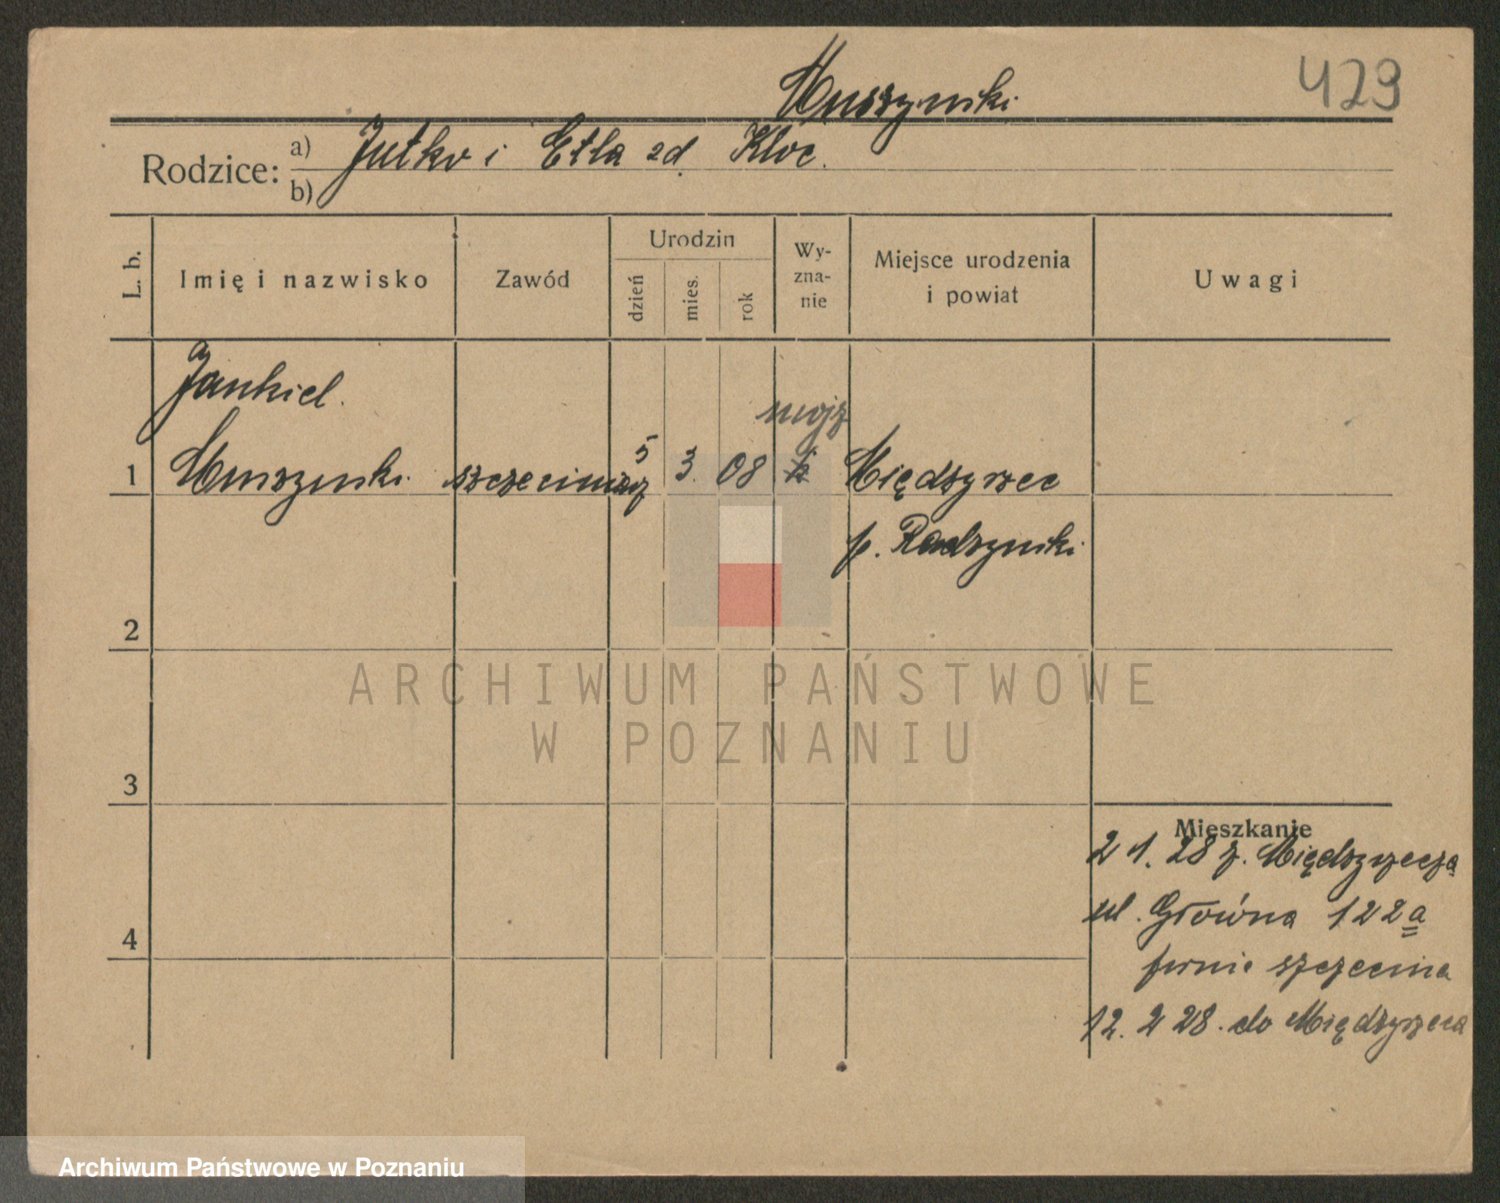 429
Muszynski
Rodzice: a) Jutko i Etla zd. Kloc.
b)
L. b. Imię i nazwisko Zawód Urodzin dzień mies. rok Wy-zna-nie Miejsce urodzenia i powiat Uwagi
Jankiel.
mojż
1 Muszynski szczeciniarz 5 3. 08 k Międzyrzec
p. Radzynski
2
ARCHIWUM PAŃSTWOWE
W POZNANIU
3
Mieszkanie
2 1. 28 z. Międzyrzecza
ul. Główna 122a
firnie szczecina
4
12. 2 28. do Międzyrzeca
Archiwum Państwowe w Poznaniu